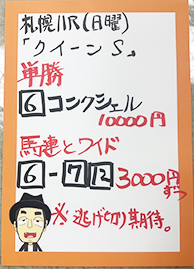 札幌11R(日曜)
「クイーンS」
単勝
6 コンクシェル
10000円
馬連とワイド
6-7,12 3000円
ずつ
※逃げ切り期待。